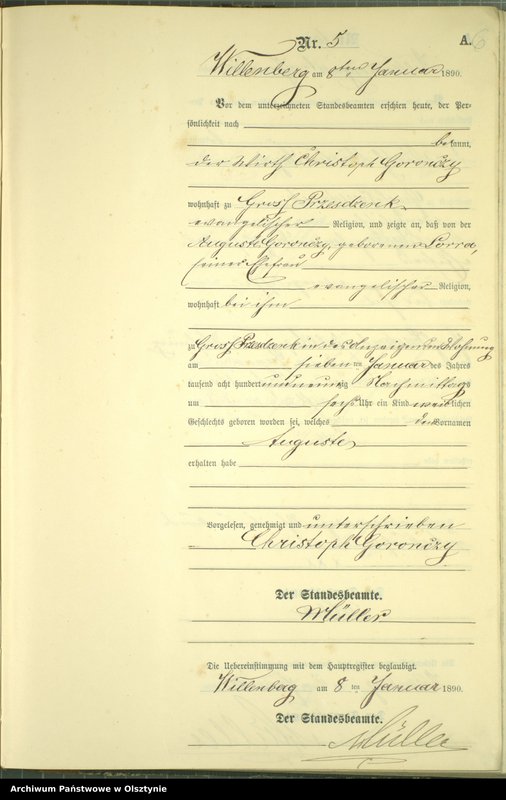 Nr. 5
A.
6
Willenberg am 8ten Januar 1890.
Vor dem unterzeichneten Standesbeamten erschien heute, der Per-
sönlichkeit nach
bekannt,
der Wirth Christoph Goronczy
wohnhaft zu Gross Przesdzenk
evangelischer Religion, und zeigte an, daß von der
Auguste Goronczy, geborenen Sorra,
seiner Ehefrau
evangelischer Religion,
wohnhaft bei ihm
zu Gross Przesdzenk in des Anzeigenden Wohnung
am sieben ten Januar des Jahres
tausend acht hundert und neunzig Nachmittags
um sechs Uhr ein Kind weiblichen
Geschlechts geboren worden sei, welches den Vornamen
Auguste
erhalten habe
Vorgelesen, genehmigt und unterschrieben
Christoph Goronczy
Der Standesbeamte.
Müller
Die Uebereinstimmung mit dem Hauptregister beglaubigt.
Willenberg am 8 ten Januar 1890.
Der Standesbeamte.
Müller
Archiwum Państwowe w Olsztynie